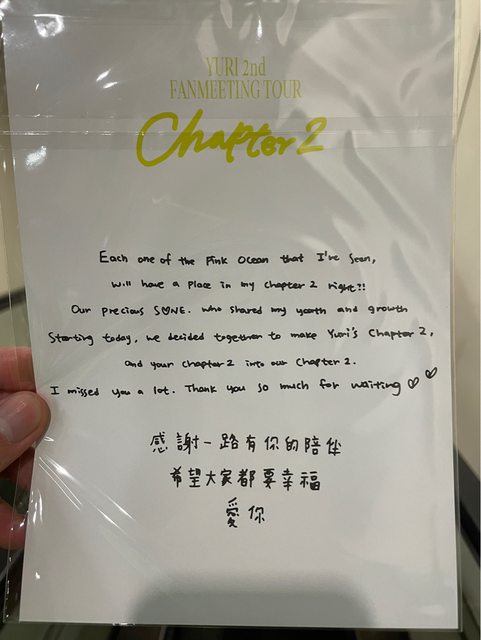 YURI 2nd
FANMEETING TOUR
Chapter 2
Each one of the Pink Ocean that I've seen,
will have a place in my chapter 2 right?!
Our precious S♡NE. who shared my youth and growth
Starting today, we decided together to make Yuri's Chapter 2,
and your chapter 2 into our Chapter 2.
I missed you a lot. Thank you so much for waiting ♡♡
感謝一路有你的陪伴
希望大家都要幸福
愛你